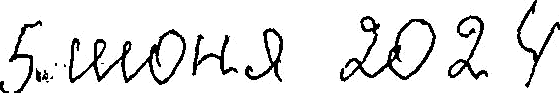 5 июня 2024